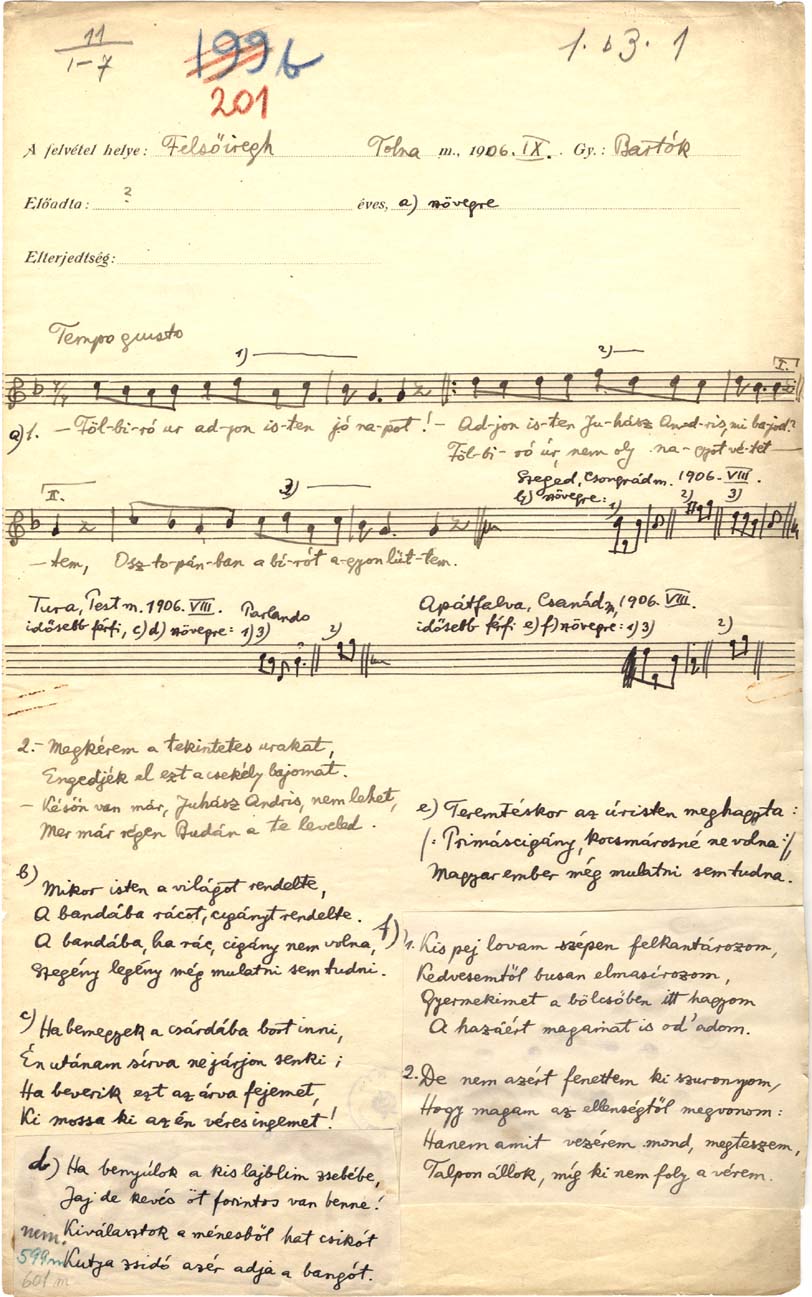 11
1-7
199b
201
1. b 3. 1
A felvétel helye: Felsőiregh Tolna m., 1906. IX. Gy.: Bartók
Előadta: ? éves, a) szövegre
Elterjedtség:
Tempo giusto
1) 2) I.
a) 1. – Föl-bi-ró ur ad-jon is-ten jó na-pot! – Ad-jon is-ten Ju-hász And-ris, mi bajod?
Föl-bi-ró úr, nem oly na-gyot vé-tet-
Szeged, Csongrád m. 1906. VIII.
b) szövegre: 1) 2) 3)
II. 3)
-tem, Osz-to-pán-ban a bi-rót a-gyon lüt-tem.
Tura, Pest m. 1906. VIII. Parlando
idősebb férfi, c) d) szövegre: 1) 3) 2)
Apátfalva, Csanád m, 1906. VIII.
idősebb férfi e) f) szövegre: 1) 3) 2)
2. – Megkérem a tekintetes urakat,
Engedjék el ezt a csekély bajomat.
– Későn van már, Juhász Andris, nem lehet,
Mer már régen Budán a te leveled.
b) Mikor isten a világot rendelte,
A bandába rácot, cigányt rendelte.
A bandába, ha rác, cigány nem volna,
Szegény legény még mulatni sem tudni.
c) Ha bemegyek a csárdába bort inni,
Én utánam sírva ne járjon senki;
Ha beverik ezt az árva fejemet,
Ki mossa ki az én véres ingemet!
d) Ha benyúlok a kis lajblim zsebébe,
Jaj de kevés öt forintos van benne!
Kiválasztok a ménesből hat csikót
Kutya zsidó azér adja a bangót.
nem.
599m
601 m
e) Teremtéskor az úristen meghagyta:
/: Prímáscigány, kocsmárosné ne volna :/,
Magyar ember még mulatni sem tudna.
f) 1. Kis pej lovam szépen felkantározom,
Kedvesemtől busan elmasírozom,
Gyermekimet a bölcsőben itt hagyom
A hazáért magamat is od'adom.
2. De nem azért fenettem ki szuronyom,
Hogy magam az ellenségtől megvonom:
Hanem amit vezérem mond, megteszem,
Talpon állok, míg ki nem foly a vérem.